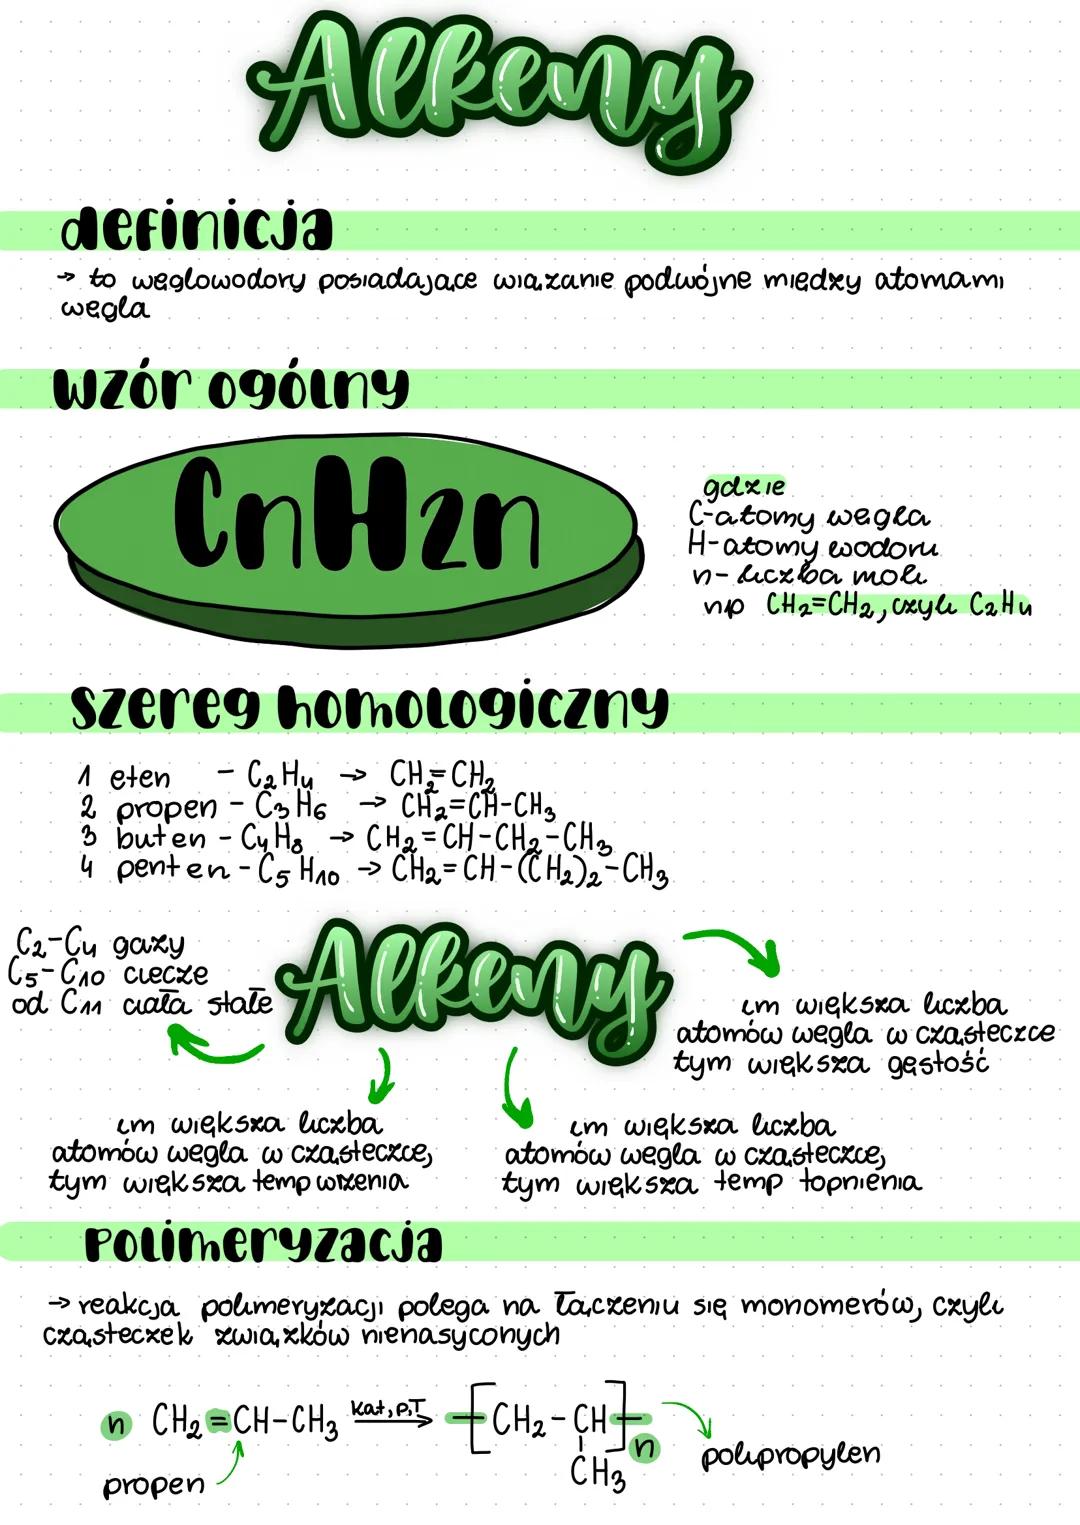 Alkeny
definicja
→ to węglowodory posiadające wiązanie podwójne między atomami
węgla
wzór ogólny
CnH2n
gdzie
C-atomy węgla
H-atomy wodoru
n-liczba moli
np CH₂=CH₂, czyli C₂H₄
szereg homologiczny
1 eten - C₂H₄ → CH₂=CH₂
2 propen - C₃H₆ → CH₂=CH-CH₃
3 buten - C₄H₈ → CH₂=CH-CH₂-CH₃
4 penten - C₅H₁₀ → CH₂=CH-(CH₂)₂-CH₃
C₂-C₄ gazy
C₅-C₁₀ ciecze
od C₁₁ ciała stałe
Alkeny
im większa liczba
atomów węgla w cząsteczce
tym większa gęstość
im większa liczba
atomów węgla w cząsteczce,
tym większa temp wrzenia
im większa liczba
atomów węgla w cząsteczce,
tym większa temp topnienia
polimeryzacja
→ reakcja polimeryzacji polega na łączeniu się monomerów, czyli
cząsteczek związków nienasyconych
n CH₂=CH-CH₃ kat, p,T → -[CH₂-CH]-n
CH₃
propen
polipropylen